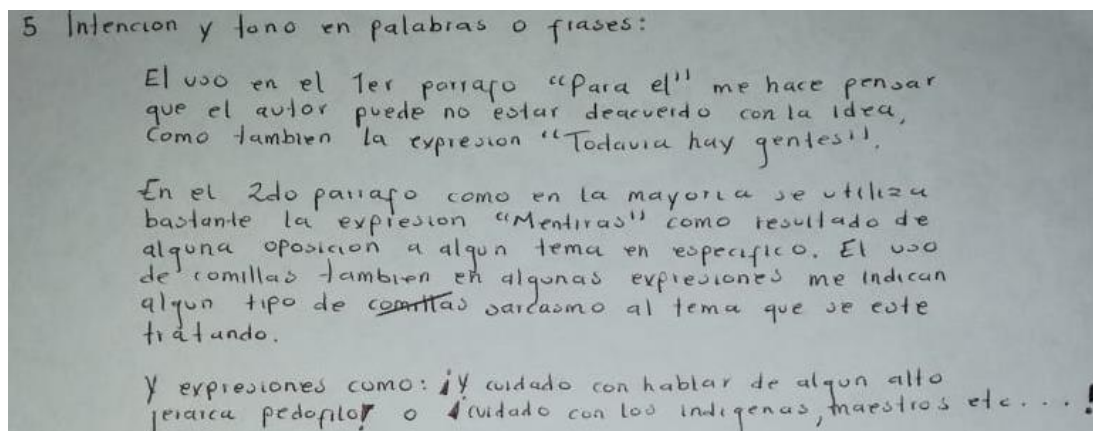 5 Intencion y tono en palabras o frases:
El uso en el 1er parrafo "Para el" me hace pensar
que el autor puede no estar deacuerdo con la idea,
Como tambien la expresion "Todavia hay gentes".
En el 2do parrafo como en la mayoria se utiliza
bastante la expresion "Mentiras" como resultado de
alguna oposicion a algun tema en especifico. El uso
de comillas tambien en algunas expresiones me indican
algun tipo de comillas sarcasmo al tema que se este
tratando.
Y expresiones como: ¡Y cuidado con hablar de algun alto
jerarca pedofilo! o ¡cuidado con los indigenas, maestros etc...!